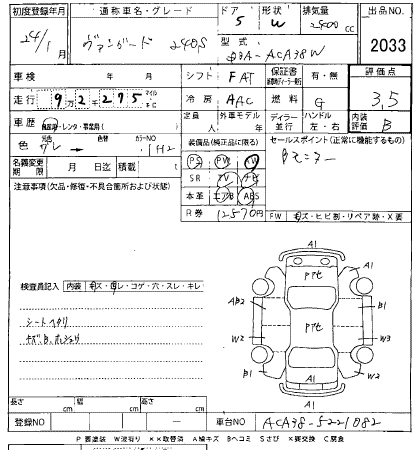 初度登録年月 通称車名・グレード ドア 形状 排気量 出品NO
24/1月 ヴァンガード 240S 5 W 2400cc 2033
型式 DBA-ACA38W
車検 年 月 シフト FAT 保証書 有・無 評価点
走行 9万2千275 km 冷房 AAC 燃料 G 3.5
車歴 自家用・レンタ・事業用( ) 定員 人 外車モデル 年 ディーラー 並行 ハンドル 左・右 内装評価 B
色 グレー → カラーNO 1H2 装備品(純正品に限る) セールスポイント(正常に機能するもの)
名義変更期限 月 日迄 積載 t PS PW Bモニター
注意事項(欠品・修復・不具合箇所および状態) SR TV ナビ
本革 エアB ABS
R券 12570円 FW キズ・ヒビ割・リペア跡・X要
検査員記入 内装 キズ・汚レ・コゲ・穴・スレ・キレ
シートヘタリ
A1
A1
AB2
B1
W2
W3
B1
W2
A1
長さ cm 幅 cm 高さ cm
登録NO 車台NO ACA38-5221082
P要塗装 W波有り XX取替済 A線キズ Bヘコミ Sさび X要交換 C腐食